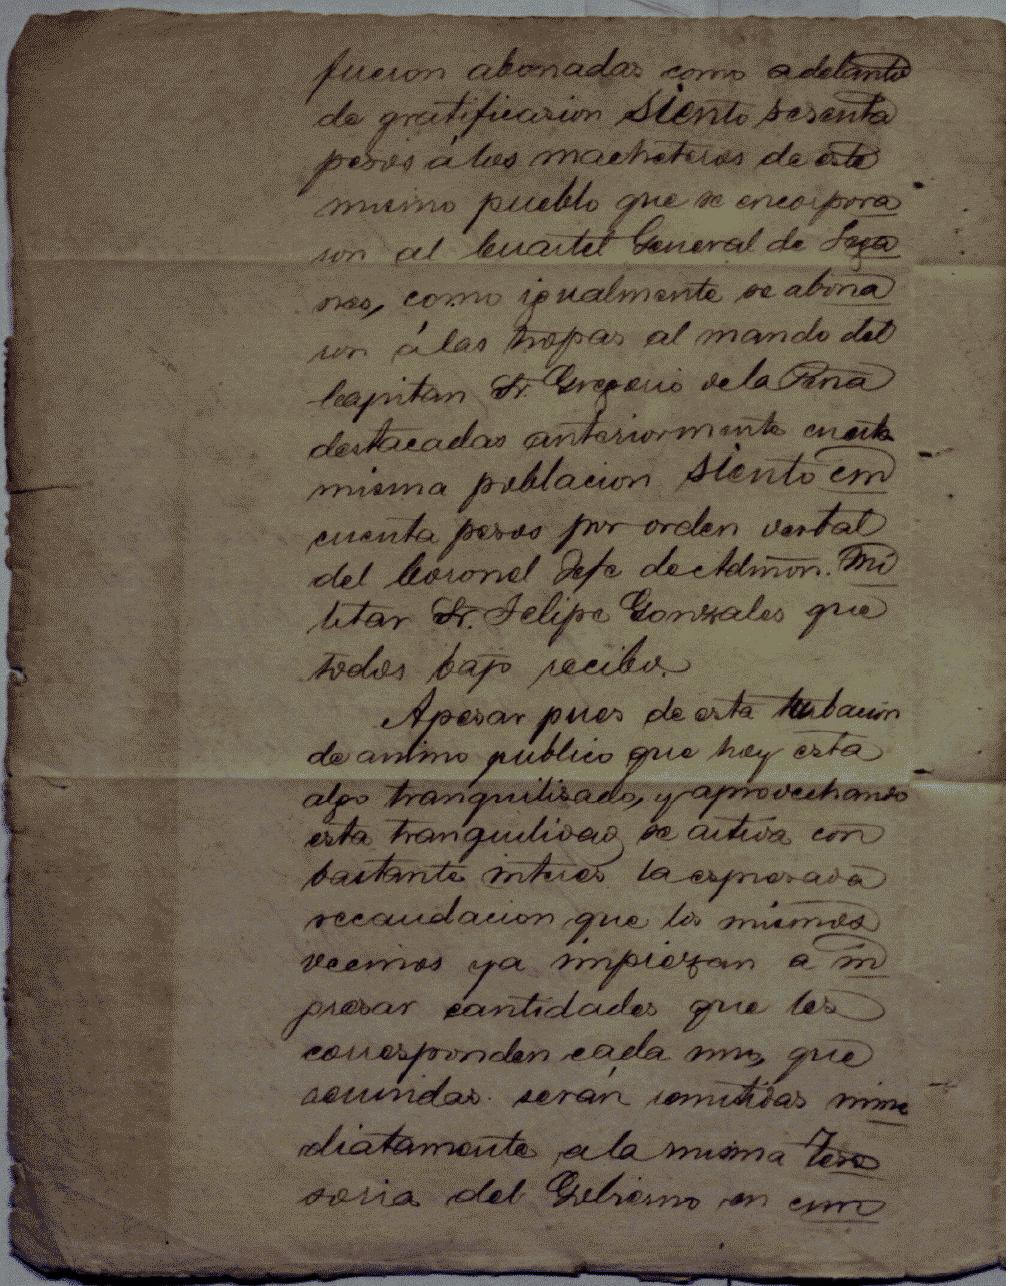 fueron abonadas como adelanto
de gratificasion siento sesenta
pesos á los macheteros de este
mismo pueblo que se encorpora
ron al Cuartel General de
nes, como igualmente se abona
ron á las tropas al mando del
Capitan Sr. Gregorio de la Peña
destacadas anteriormente en esta
misma poblacion siento cin
cuenta pesos por orden verbal
del Coronel Jefe de Admon. Mi
litar Sr. Felipe Gonzales que
todos bajo recibo.
Apesar pues de esta turbacion
de animo publico que hoy esta
algo tranquilisado, y aprovechando
esta tranquilidad se activa con
bastante interes la espresada
recaudacion que los mismos
vecinos ya impiezan a in
gresar cantidades que les
corresponden cada uno, que
reunidas serán remitidas inme
diatamente a la misma Teso
soria del Gobierno en cum